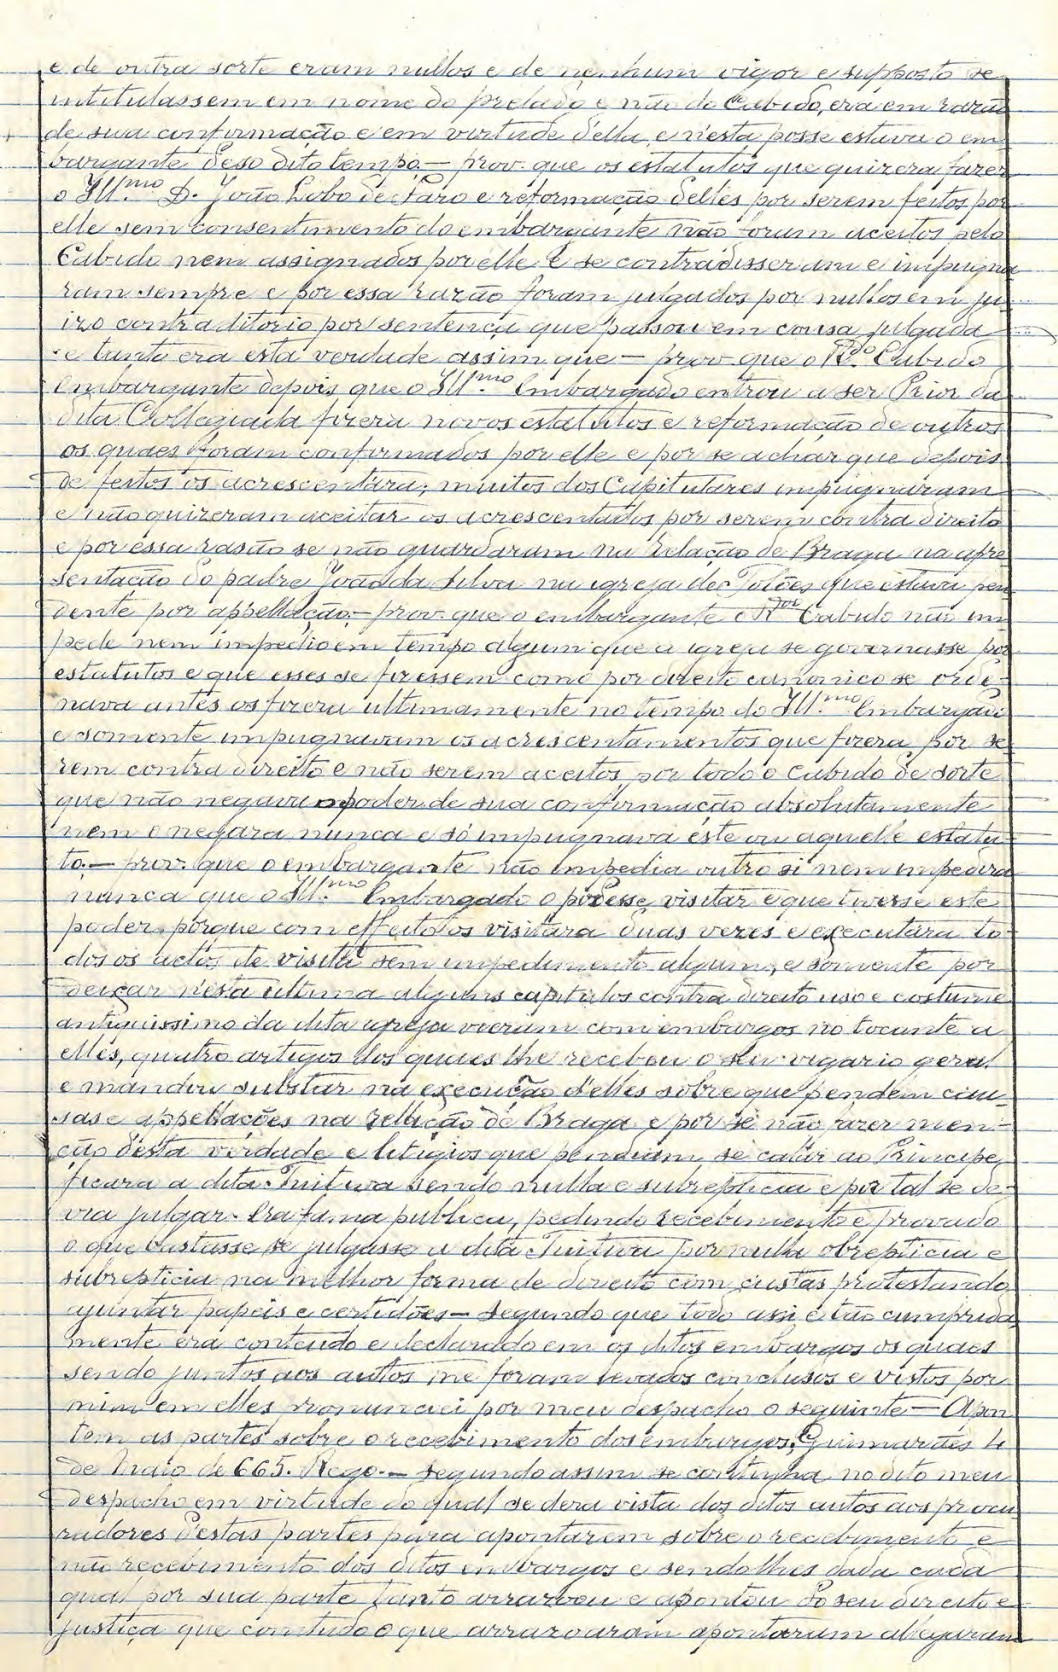 e de outra sorte eram nullos e de nenhum vigor e supposto se
intitulassem em nome do prelado e não do Cabido, era em razão
de sua confirmação e em virtude d'ella, e n'esta posse estava o em
bargante deso dito tempo — prov. que os estatutos que quizera fazer
o Ill.mo D. João Lobo de Faro e reformação d'elles por serem feitos por
elle sem consentimento do embargante não foram aceitos pelo
Cabido nem assignados por elle e se contradisseram e impugna
ram sempre e por essa razão foram julgados por nullos em ju-
izo contraditorio por sentença que passou em cousa julgada
e tanto era esta verdade assim que — prov que o R.do Cabido
Embargante depois que o Ill.mo Embargado entrou a ser Prior da
dita Collegiada fizera novos estatutos e reformação de outros
os quaes foram confirmados por elle e por se achar que depois
de feitos os acrescentára; muitos dos Capitulares impugnaram
e não quizeram aceitar os acrescentados por serem contra direito
e por essa rasão se não guardaram na Relação de Braga na apre
sentação do padre João da Silva na igreja de Tolões que estava pen
dente por appellação — prov. que o embargante o R.do Cabido não im
pede nem impedio em tempo algum que a igreja se governasse por
estatutos e que esses se fizessem como por direito canonico se orde-
nava antes os fizera ultimamente no tempo do Ill.mo Embargado
e somente impugnavam os acrescentamentos que fizera por se-
rem contra direito e não serem aceitos por todo o Cabido de sorte
que não negava o poder de sua confirmação absolutamente
nem o negara nunca e só impugnava este ou aquelle estatu-
to — prov. que o embargante não impedia outro si nem impedira
nunca que o Ill.mo Embargado o podesse visitar e que tivesse este
poder porque com effeito os visitára duas vezes e executára to-
dos os actos de visita sem impedimento algum, e somente por
deixar n'esta ultima alguns capitulos contra direito uso e costume
antiquissimo da dita igreja vieram com embargos no tocante a
elles, quatro artigos dos quaes lhe recebeu o seu vigario geral
e mandou substar na execução d'elles sobre que pendem cau-
sas e appellações na Relação de Braga e por se não fazer men-
ção d'esta verdade e litigios que pendiam, se calar ao Principe
ficara a dita Tuitiva sendo nulla e subrepticia e por tal se de-
via julgar. Era fama publica, pedindo recebimento e provado
o que bastasse se julgasse a dita Tuitiva por nulla obrepticia e
subrepticia na melhor forma de direito com custas protestando
ajuntar papeis e certidões — segundo que todo assi e tão cumprida
mente era conteudo e declarado em os ditos embargos os quaes
sendo juntos aos autos me foram levados conclusos e vistos por
mim em elles pronunciei por meu despacho o seguinte — Apon
tem as partes sobre o recebimento dos embargos, Guimarães 4
de Maio de 665. Rego. — segundo assim se continha no dito meu
despacho em virtude do qual se dera vista dos ditos autos aos procu
radores d'estas partes para apontarem sobre o recebimento e
não recebimento dos ditos embargos e sendo lhes dada cada
qual por sua parte tanto arrazoou e apontou do seu direito e
justiça que comtudo o que arrazoaram apontaram alegaram